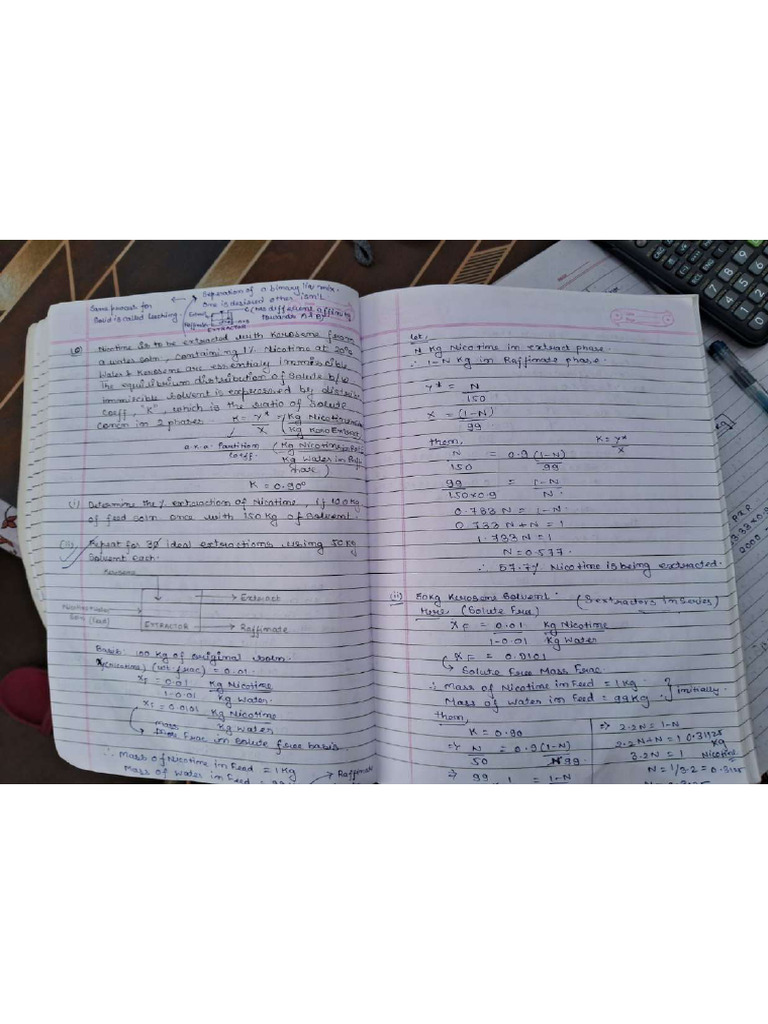 Separation of a binary liq mix.
Same process for
Solid is called Leaching
one is desired & other isn't
C (has different affinity
towards A & B)
Extract
Raffinate
EXTRACTOR
Q) Nicotine is to be extracted with Kerosene from
a water soln, containing 1% Nicotine at 20°C
Water & Kerosene are essentially immiscible
The equilibrium distribution of Solute b/w
immiscible Solvent is expressed by distribn
Coeff, "K", which is the ratio of Solute
Concn in 2 phases.
K = Y*
X
a.k.a. Partition
coeff.
(Kg Nicotine in
Kg Water in Raff
phase)
K = 0.90
(i) Determine the % extraction of Nicotine, if 100 kg
of feed soln once with 150 Kg of Solvent.
(ii) Repeat for 3 ideal extractions using 50 Kg
Solvent each.
Kerosene
Extract
EXTRACTOR
Raffinate
Basis: 100 Kg of original Soln.
(Nicotine) (wt. frac) = 0.01
XF = 0.01 Kg Nicotine
1-0.01 Kg Water
XF = 0.0101 Kg Nicotine
Kg Water
Mass Frac in Solute free basis
∴ Mass of Nicotine in Feed = 1 Kg
Mass of Water in Feed = 99
Raffinate
let,
N Kg Nicotine in extract phase
∴ 1-N Kg in Raffinate phase.
Y* = N
150
X = (1-N)
99
then,
K = Y*
X
N = 0.9 (1-N)
150 99
99 = 1-N
150x0.9 N
0.733 N = 1-N
0.733 N + N = 1
1.733 N = 1
N = 0.577.
∴ 57.7% Nicotine is being extracted.
(ii) 50kg Kerosene Solvent. (3 extractors in Series)
Here, (Solute Free)
XF = 0.01 Kg Nicotine
1-0.01 Kg Water
XF = 0.0101
Solute Free Mass Frac.
∴ Mass of Nicotine in Feed = 1 Kg
Mass of Water in Feed = 99 Kg
initially.
then,
K = 0.90
⇒ N = 0.9 (1-N)
50 99
⇒ 99 1 = 1-N
⇒ 2.2 N = 1-N
2.2 N + N = 1
3.2 N = 1
N = 1/3.2 = 0.3125
0.3125
Kg
Nicotine